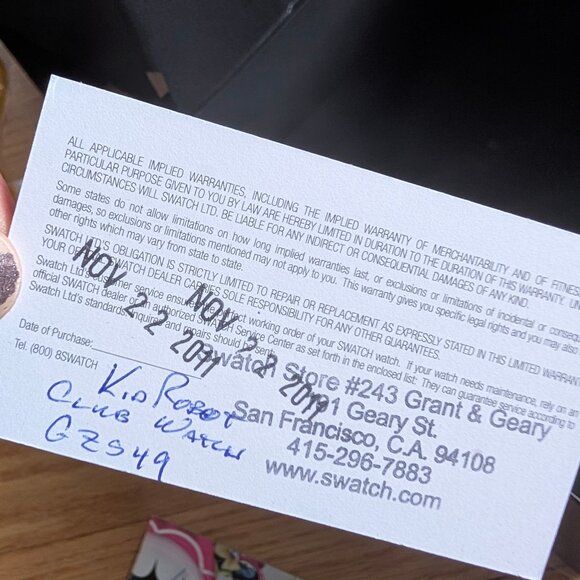 ALL APPLICABLE IMPLIED WARRANTIES, INCLUDING THE IMPLIED WARRANTY OF MERCHANTABILITY AND OF FITNES
PARTICULAR PURPOSE GIVEN TO YOU BY LAW ARE HEREBY LIMITED IN DURATION TO THE DURATION OF THIS WARRANTY. UN
CIRCUMSTANCES WILL SWATCH LTD. BE LIABLE FOR ANY INDIRECT OR CONSEQUENTIAL DAMAGES OF ANY KIND.
Some states do not allow limitations on how long implied warranties last, or exclusions or limitations of incidental or conseq
damages, so exclusions or limitations mentioned may not apply to you. This warranty gives you specific legal rights and you may also
other rights which may vary from state to state.
SWATCH LTD'S OBLIGATION IS STRICTLY LIMITED TO REPAIR OR REPLACEMENT AS EXPRESSLY STATED IN THIS LIMITED WARRANT
YOUR OFFICIAL SWATCH DEALER CARRIES SOLE RESPONSIBILITY FOR ANY OTHER GUARANTEES.
Swatch Ltd's customer service ensures correct working order of your SWATCH watch. If your watch needs maintenance, rely on an
official SWATCH dealer or an authorized SWATCH Service Center as set forth in the enclosed list: They can guarantee service according to
Swatch Ltd's standards. Inquiries and repairs should be sent
NOV 22 2011
NOV 22 2011
Date of Purchase:
Tel. (800) 8SWATCH
Swatch Store #243 Grant & Geary
Geary St.
San Francisco, C.A. 94108
415-296-7883
www.swatch.com
KID ROBOT
CLUB WATCH
GZS49